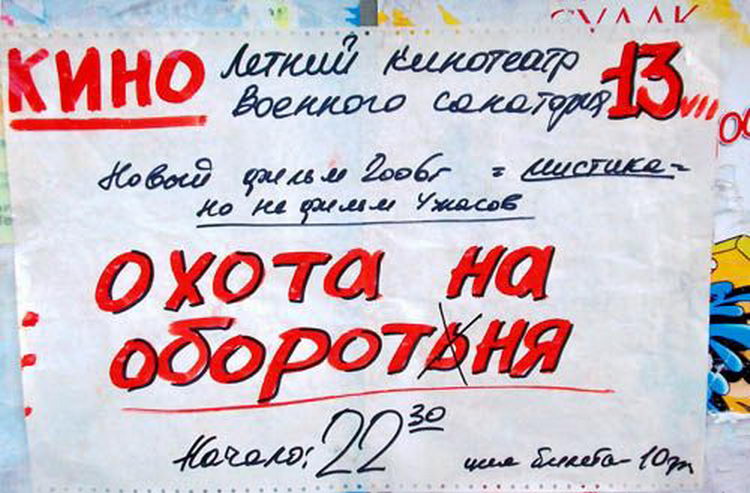 СУДАК
КИНО Летний кинотеатр 13 VIII
Военного санатория
Новый фильм 2006г = мистика =
но не фильм ужасов
ОХОТА НА
ОБОРОТЬНЯ
Начало: 22 30 цена билета - 10 гр